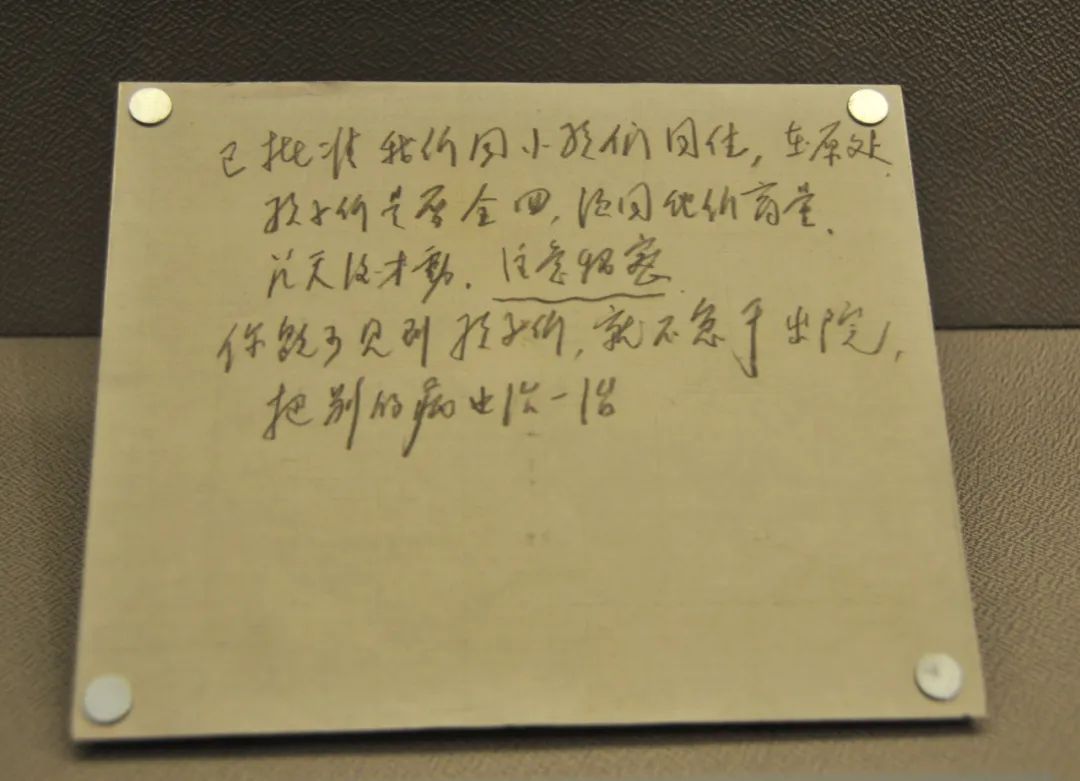 已批准我们同小孩们同住，在原处.
孩子们是否全回，须同他们商量.
几天后才动. 注意保密.
你能够见到孩子们，就不急于出院，
把别的病也治一治